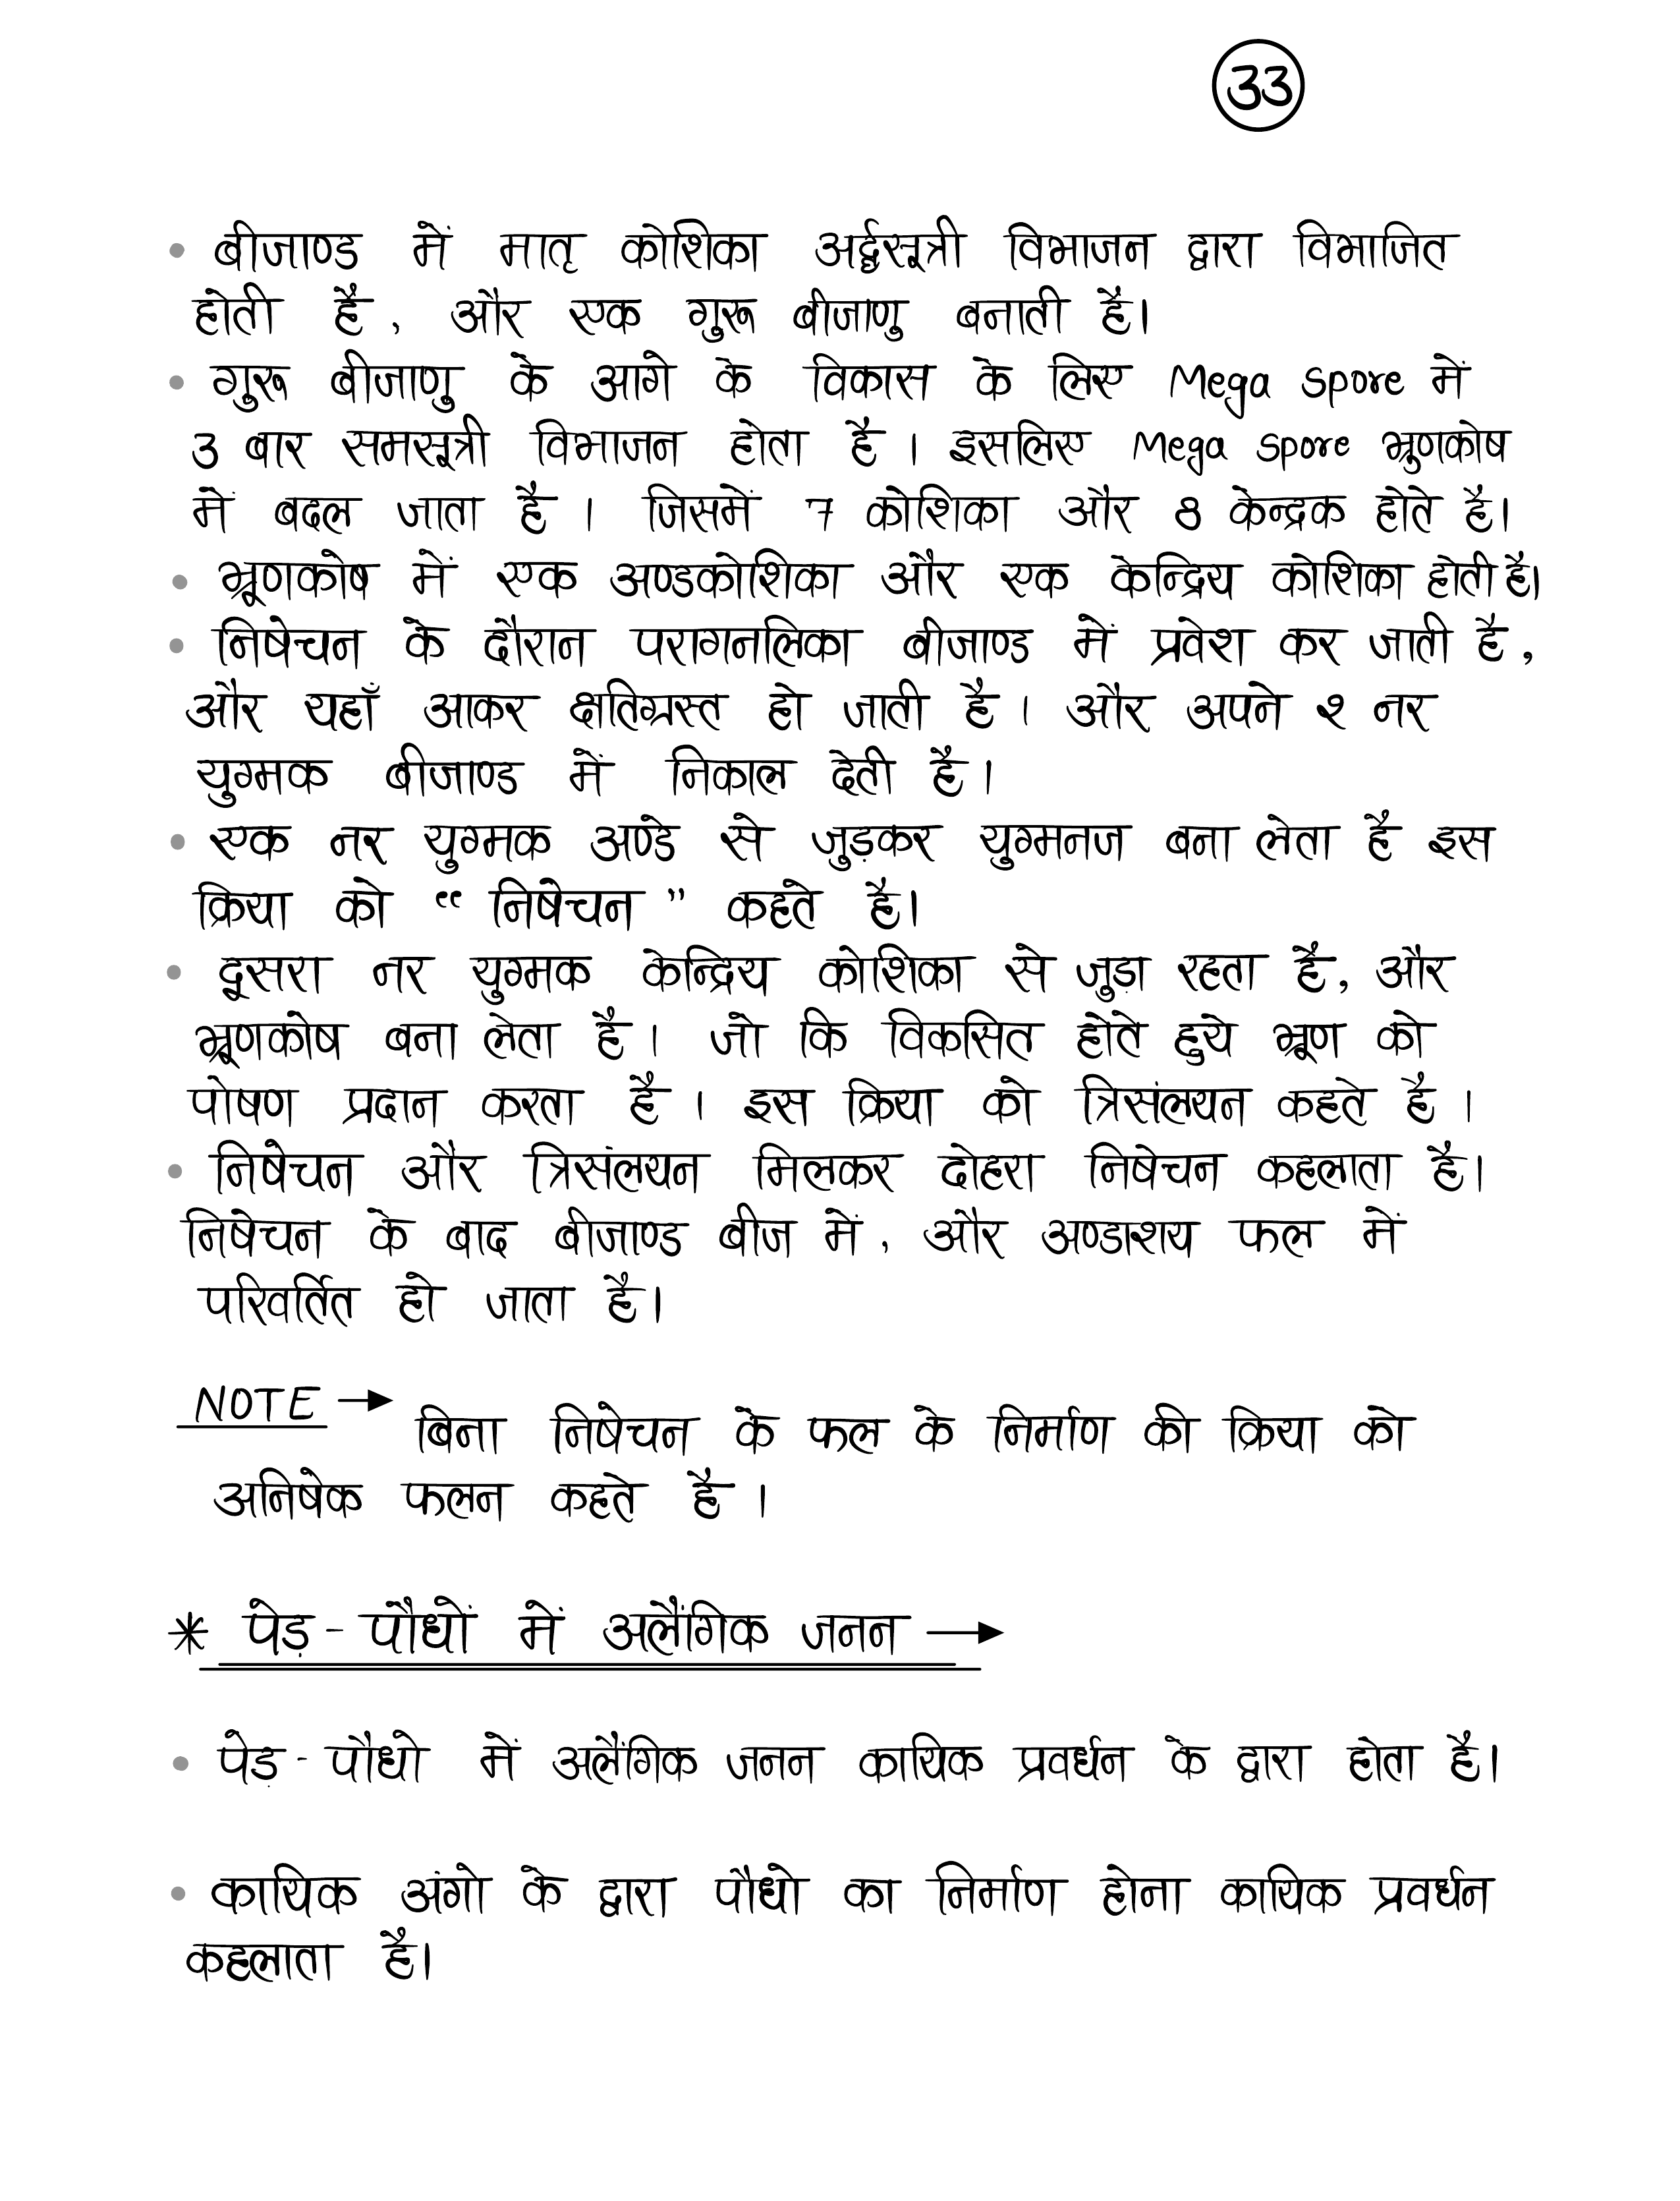 33
• बीजाण्ड में मातृ कोशिका अर्द्धसूत्री विभाजन द्वारा विभाजित
होती है, और एक गुरू बीजाणु बनाती है।
• गुरू बीजाणु के आगे के विकास के लिए Mega Spore में
3 बार समसूत्री विभाजन होता है। इसलिए Mega Spore भ्रुणकोष
में बदल जाता है। जिसमें 7 कोशिका और 8 केन्द्रक होते है।
• भ्रूणकोष में एक अण्डकोशिका और एक केन्द्रिय कोशिका होती है।
• निषेचन के दौरान परागनलिका बीजाण्ड में प्रवेश कर जाती है,
और यहाँ आकर क्षतिग्रस्त हो जाती है। और अपने २ नर
युग्मक बीजाण्ड में निकाल देती है।
• एक नर युग्मक अण्डे से जुड़कर युग्मनज बना लेता है इस
क्रिया को “ निषेचन ” कहते है।
• दूसरा नर युग्मक केन्द्रिय कोशिका से जुड़ा रहता है, और
भ्रूणकोष बना लेता है। जो कि विकसित होते हुये भ्रूण को
पोषण प्रदान करता है। इस क्रिया को त्रिसंलयन कहते है।
• निषेचन और त्रिसंलयन मिलकर दोहरा निषेचन कहलाता है।
निषेचन के बाद बीजाण्ड बीज में, और अण्डाशय फल में
परिवर्तित हो जाता है।
NOTE → बिना निषेचन के फल के निर्माण की क्रिया को
अनिषेक फलन कहते है।
* पेड़ - पौधों में अलैंगिक जनन →
• पेड़ - पौधो में अलैंगिक जनन कायिक प्रवर्धन के द्वारा होता है।
• कायिक अंगो के द्वारा पौधो का निर्माण होना कायिक प्रवर्धन
कहलाता है।